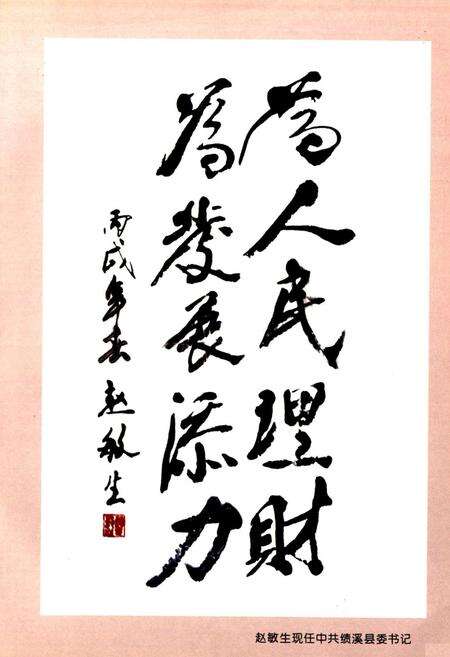 為人民理財
為發展添力
丙戌年春 赵敏生
赵敏生现任中共绩溪县委书记